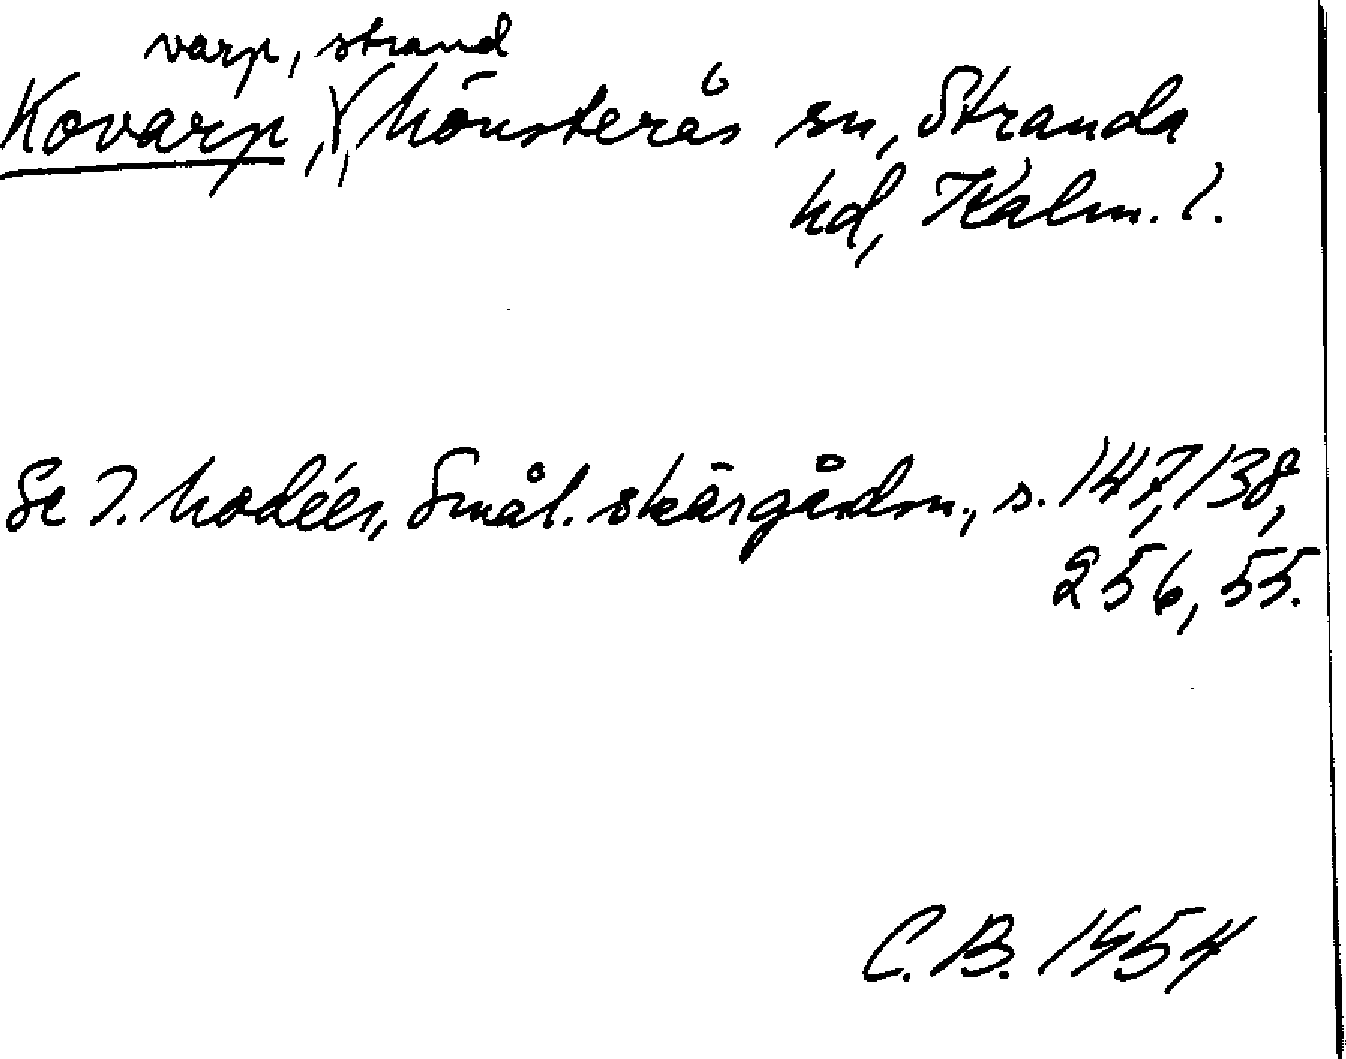 varp, strand
Kovarp, Mönsterås sn, Stranda
hd, Kalm. l.
Se I. Modéer, Smål. skärgårdsn., s. 147, 138,
256, 55.
C.B. 1954